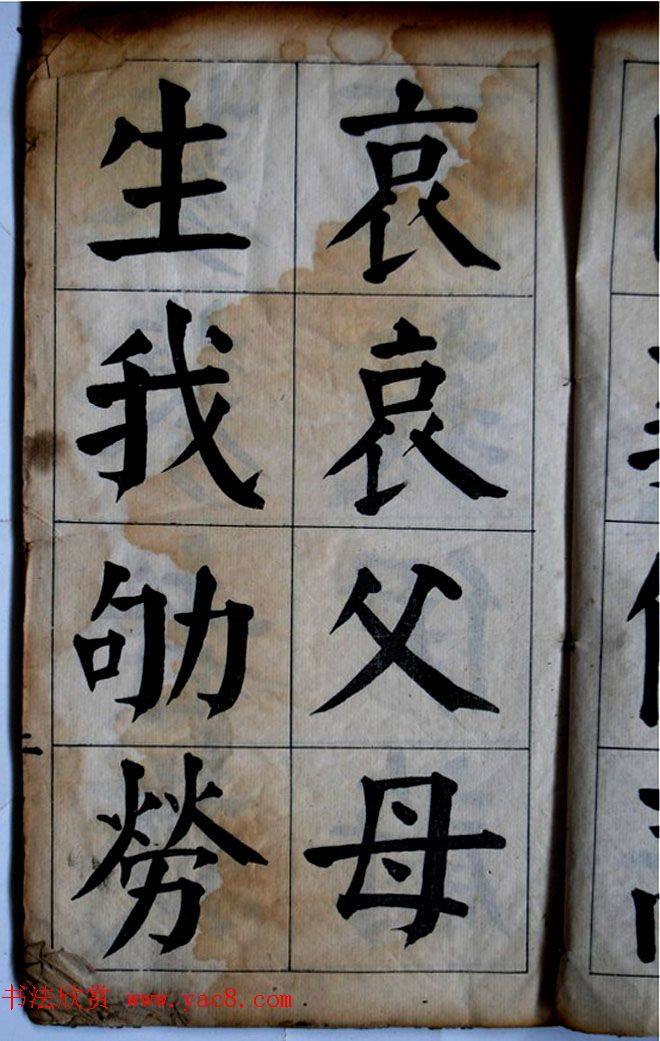 哀哀父母
生我劬勞
二
书法欣赏 www.yac8.com